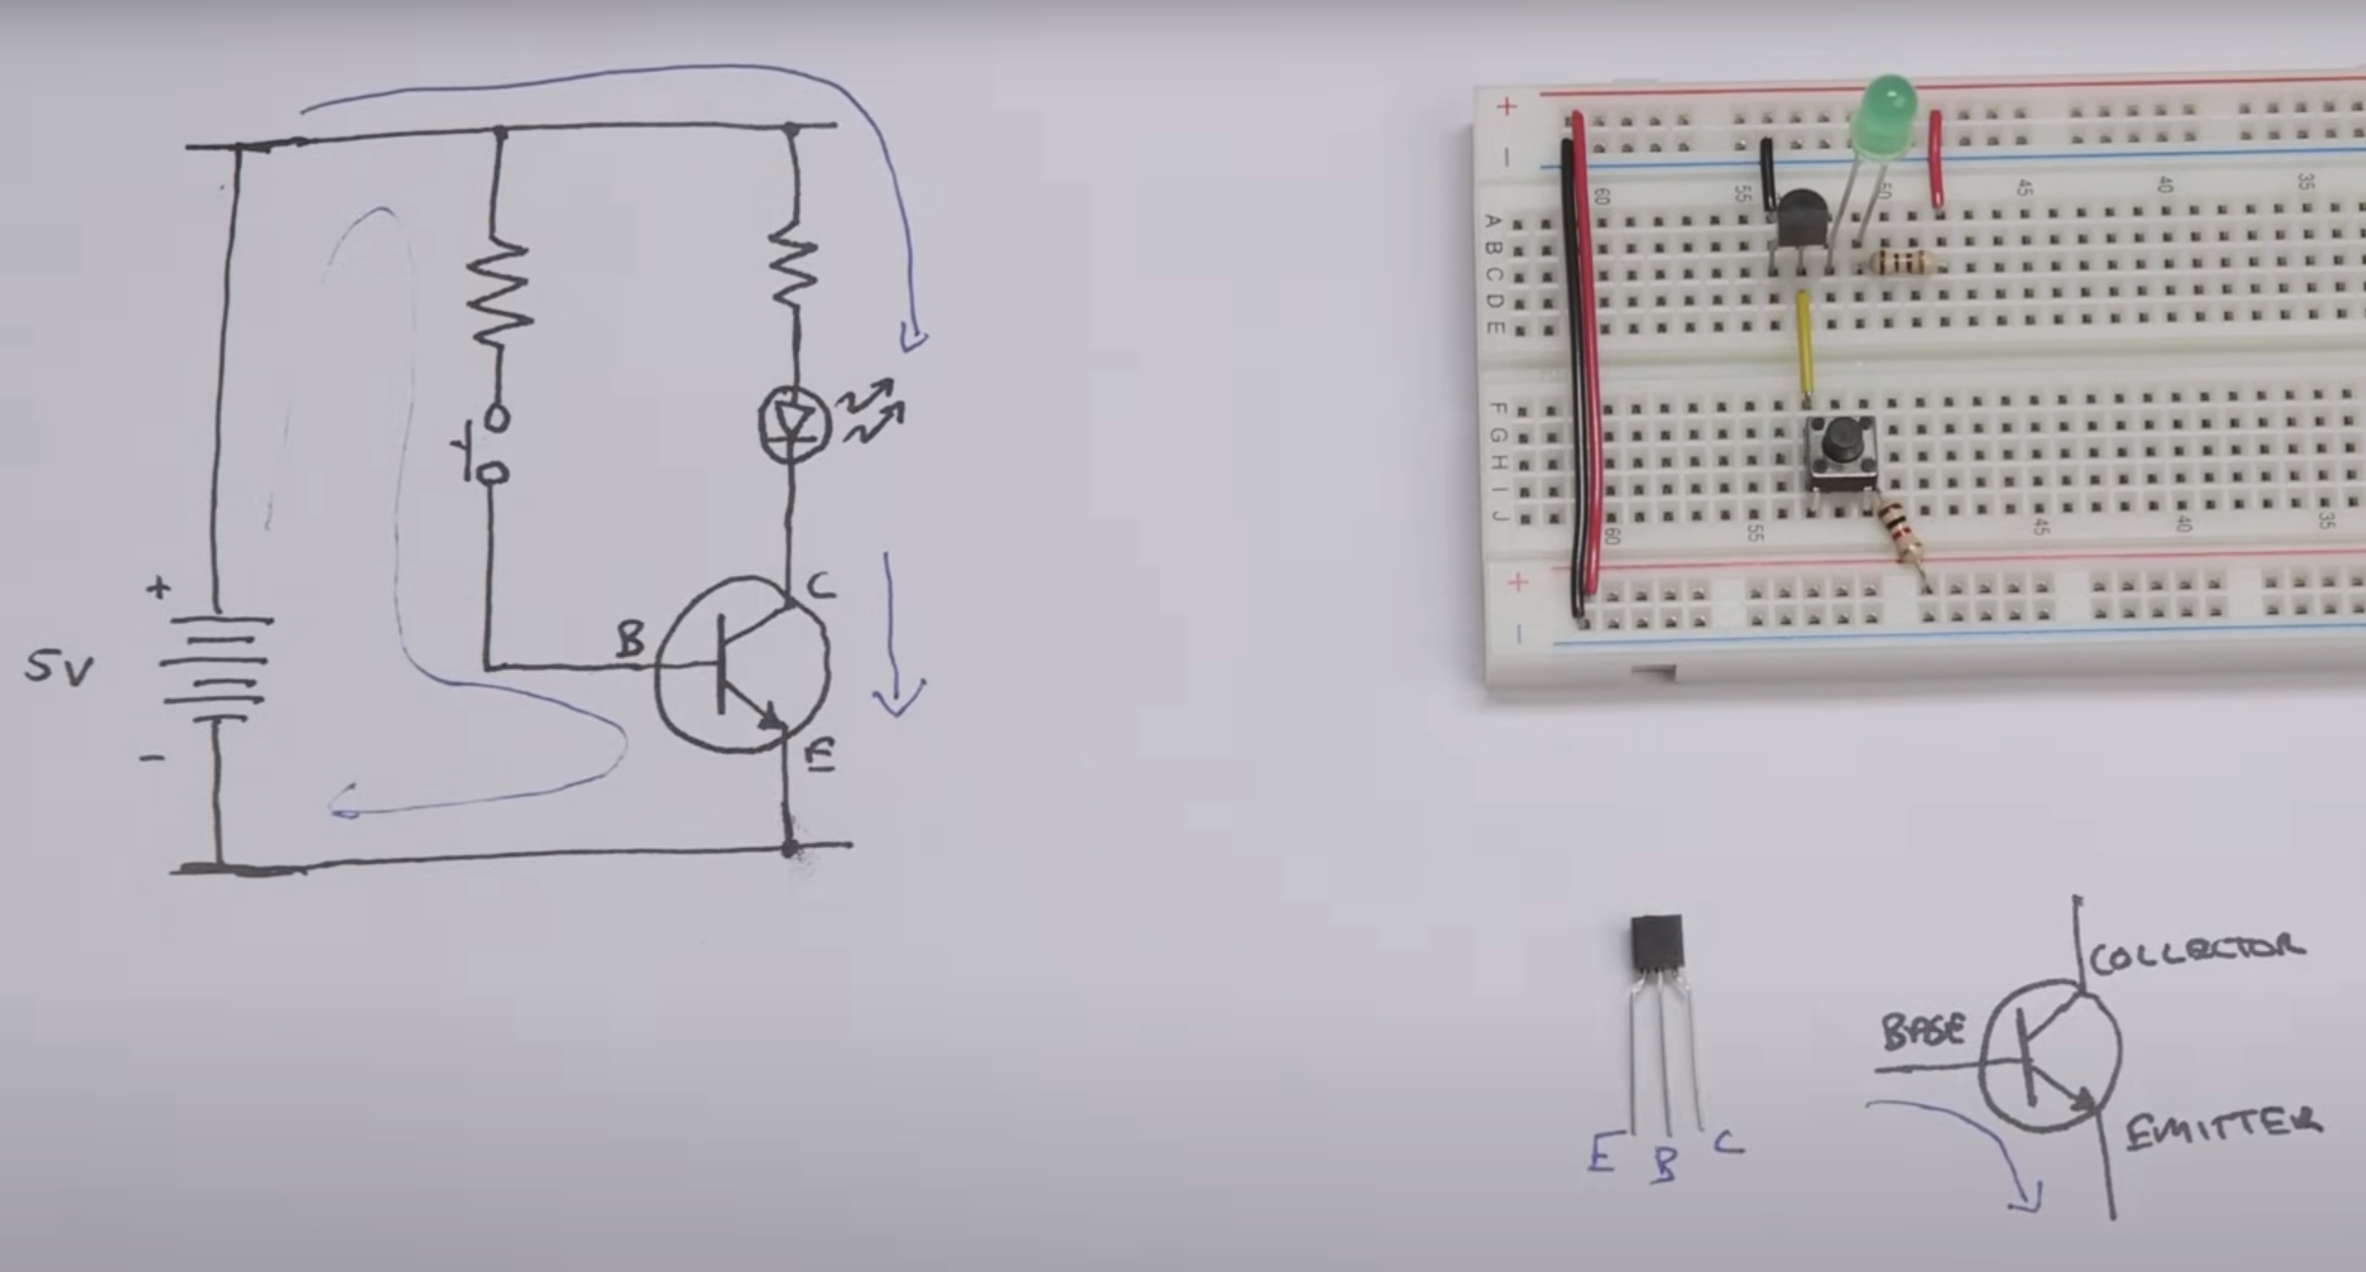 +
5V
-
B
C
E
+
-
60
55
50
45
40
35
A
B
C
D
E
F
G
H
I
J
60
55
45
40
35
+
-
E B C
COLLECTOR
BASE
EMITTER